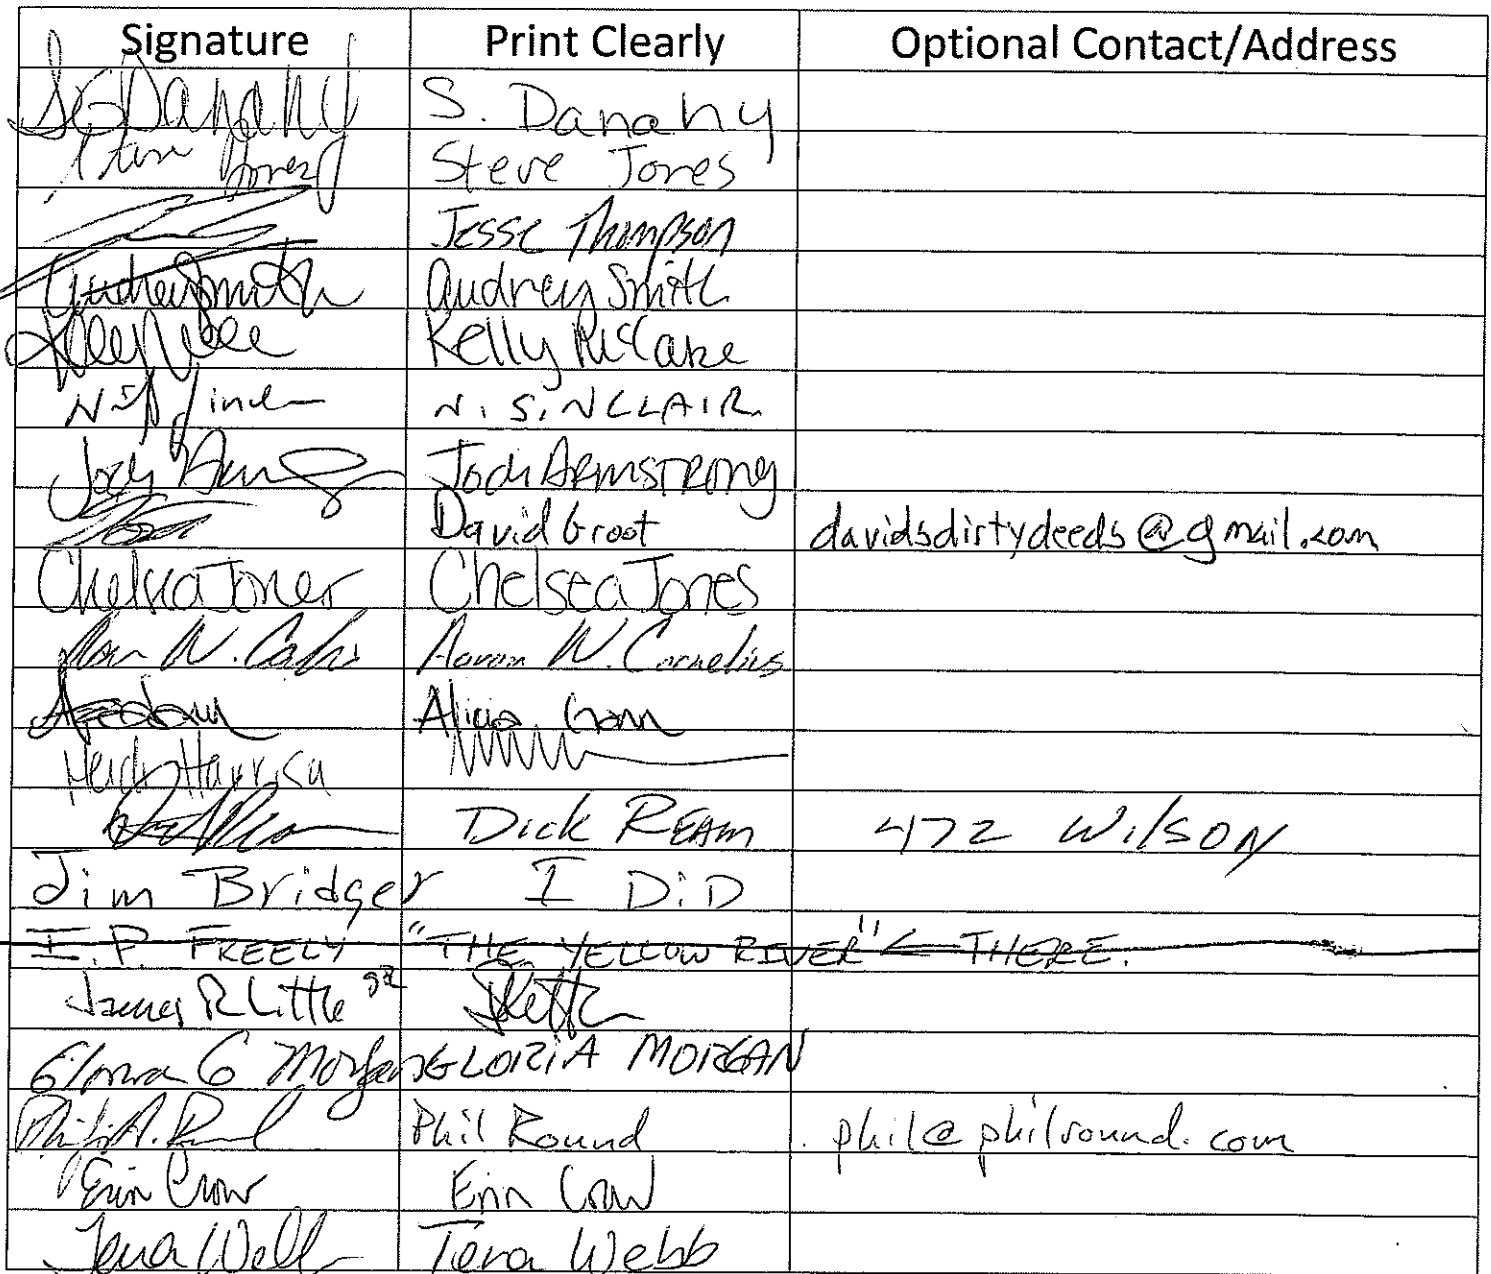 Signature Print Clearly Optional Contact/Address
SG Danahy S. Danahy
Steve Jones Steve Jones
Jesse Thompson
Audrey Smith Audrey Smith
Kelly McCabe
N. SiNCLAIR
Jodi Armstrong
David Groot davidsdirtydeeds@gmail.com
Chelsea Jones Chelsea Jones
Aaron W. Cornelius
Alicia
Heidi Harrison
Dick REAm 472 WilsoN
Jim Bridger I DiD
I. P. FREELY "THE YELLOW RIVER" ← THERE.
James R Little
Gloria G Morgan GLORiA MORGAN
Phil Round phil@philround.com
Erin Crow Erin Crow
Tera Webb Tera Webb